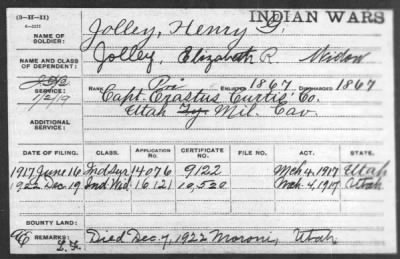 (3-H-21)
INDIAN WARS
NAME OF SOLDIER: Jolley, Henry G.
NAME AND CLASS OF DEPENDENT: Jolley, Elizabeth R. Widow
SERVICE: RANK Pvt ENLISTED 1867, DISCHARGED 1867
1/2/19 Capt. Erastus Curtis' Co.
ADDITIONAL SERVICE: Utah Mil. Cav.
DATE OF FILING. CLASS. APPLICATION No. CERTIFICATE No. FILE No. ACT. STATE.
1917 June 16 Ind Sur 14076 9122 Mch 4, 1917 Utah
1922 Dec. 19 Ind. Wid. 16,121 10,520 Mch. 4, 1917 Utah
BOUNTY LAND:
REMARKS: Died Dec. 7, 1922 Moroni, Utah